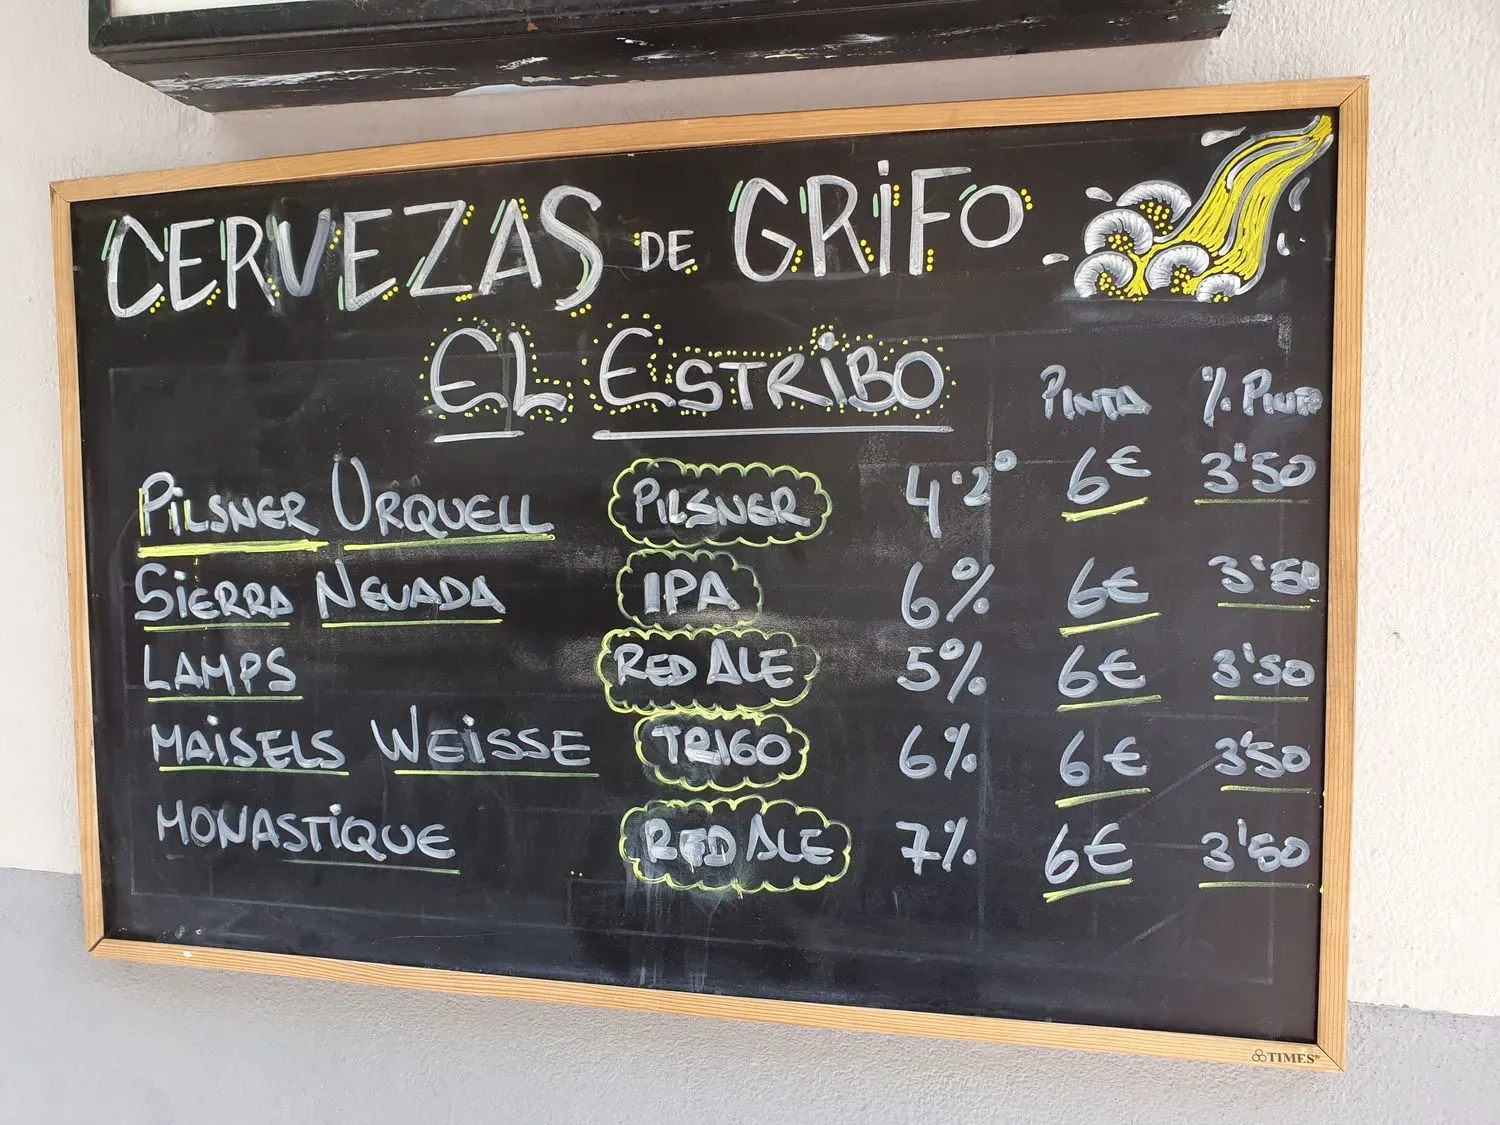 CERVEZAS DE GRIFO
EL ESTRIBO
PINTA ½ PINTA
PILSNER URQUELL PILSNER 4'2° 6€ 3'50
SIERRA NEVADA IPA 6% 6€ 3'50
LAMPS RED ALE 5% 6€ 3'50
MAISELS WEISSE TRIGO 6% 6€ 3'50
MONASTIQUE RED ALE 7% 6€ 3'50
TIMES